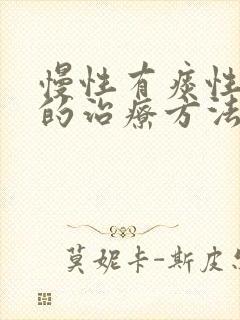 慢性有痰性
的治疗方法
莫妮卡-斯皮